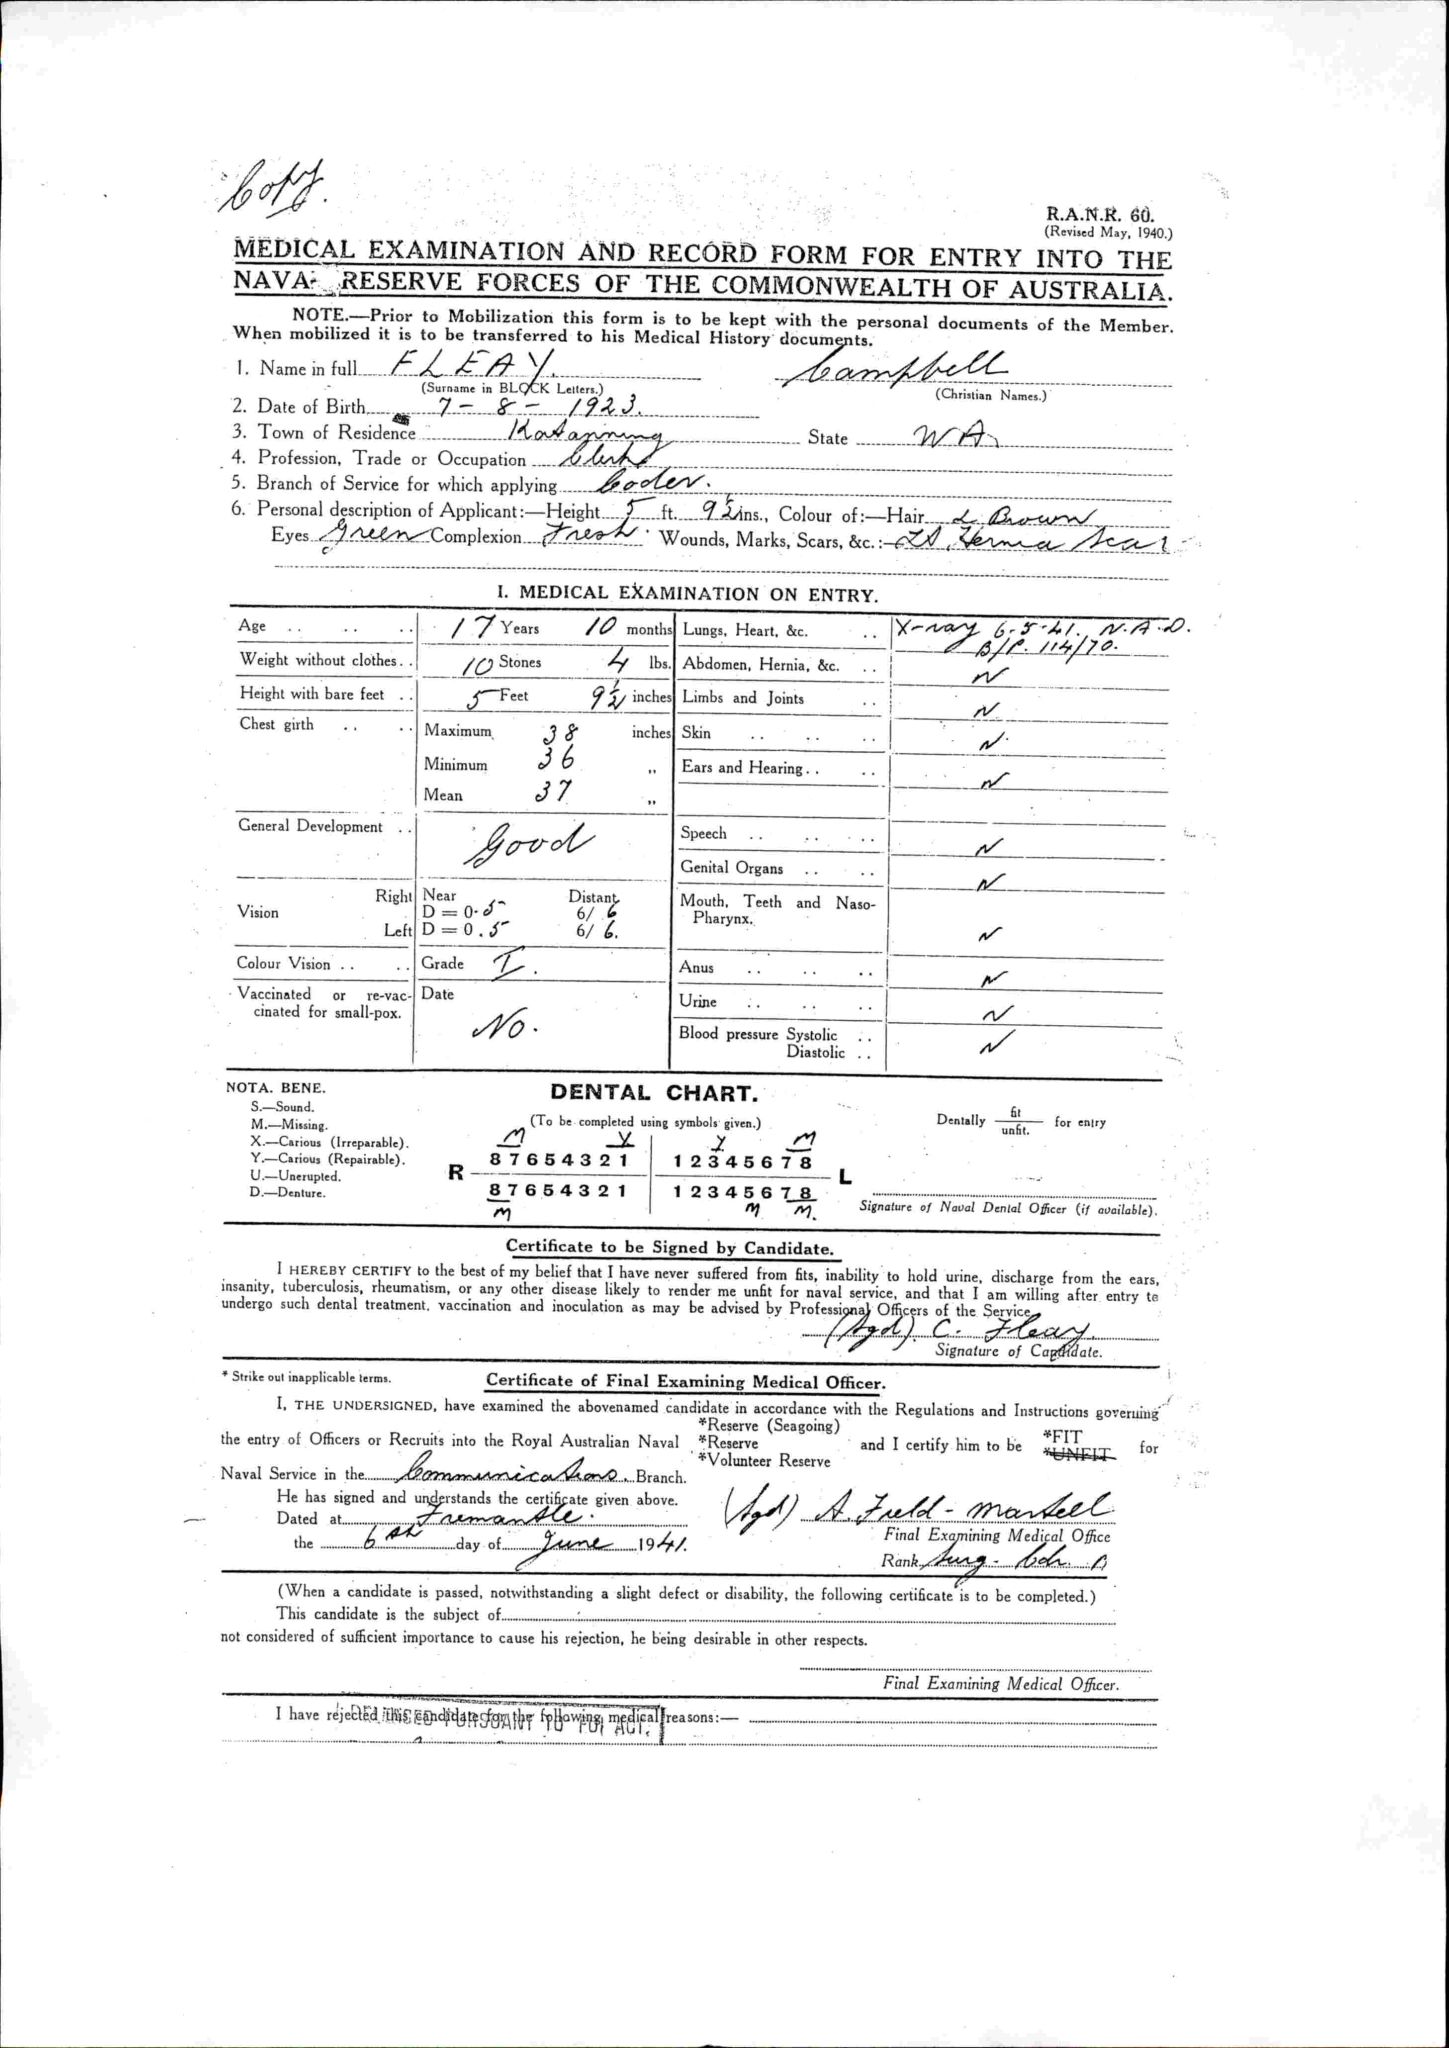 Copy.
R.A.N.R. 60.
(Revised May, 1940.)
MEDICAL EXAMINATION AND RECORD FORM FOR ENTRY INTO THE
NAVA RESERVE FORCES OF THE COMMONWEALTH OF AUSTRALIA.
NOTE.—Prior to Mobilization this form is to be kept with the personal documents of the Member.
When mobilized it is to be transferred to his Medical History documents.
1. Name in full FLEAY. Campbell
(Surname in BLOCK Letters.) (Christian Names.)
2. Date of Birth 7 - 8 - 1923.
3. Town of Residence Katanning State W A.
4. Profession, Trade or Occupation Clerk
5. Branch of Service for which applying Coder.
6. Personal description of Applicant:—Height 5 ft. 9½ ins., Colour of:—Hair L Brown
Eyes Green Complexion Fresh. Wounds, Marks, Scars, &c.:— Hernia Scar
I. MEDICAL EXAMINATION ON ENTRY.
Age .. .. .. 17 Years 10 months Lungs, Heart, &c. .. X-ray 6-5-41. N.A.D.
B/P. 114/70.
Weight without clothes .. 10 Stones 4 lbs. Abdomen, Hernia, &c. .. N
Height with bare feet .. 5 Feet 9½ inches Limbs and Joints .. N
Chest girth .. .. Maximum 38 inches Skin .. .. .. N
Minimum 36 „ Ears and Hearing .. .. N
Mean 37 „
General Development .. Good Speech .. .. .. N
Genital Organs .. .. N
Vision Right Near D = 0.5 Distant 6/6 Mouth, Teeth and Naso-
Left D = 0.5 6/6. Pharynx. N
Colour Vision .. .. Grade I. Anus .. .. .. N
Vaccinated or re-vac- Date Urine .. .. .. N
cinated for small-pox. No. Blood pressure Systolic .. N
Diastolic ..
NOTA. BENE. DENTAL CHART.
S.—Sound.
M.—Missing. (To be completed using symbols given.) Dentally fit / unfit. for entry
X.—Carious (Irreparable). M Y Y M
Y.—Carious (Repairable). 8 7 6 5 4 3 2 1 1 2 3 4 5 6 7 8
U.—Unerupted. R L
D.—Denture. 8 7 6 5 4 3 2 1 1 2 3 4 5 6 7 8
M M M. Signature of Naval Dental Officer (if available).
Certificate to be Signed by Candidate.
I HEREBY CERTIFY to the best of my belief that I have never suffered from fits, inability to hold urine, discharge from the ears,
insanity, tuberculosis, rheumatism, or any other disease likely to render me unfit for naval service, and that I am willing after entry to
undergo such dental treatment, vaccination and inoculation as may be advised by Professional Officers of the Service
(Sgd). C. Fleay.
Signature of Candidate.
* Strike out inapplicable terms. Certificate of Final Examining Medical Officer.
I, THE UNDERSIGNED, have examined the abovenamed candidate in accordance with the Regulations and Instructions governing
*Reserve (Seagoing) *FIT
the entry of Officers or Recruits into the Royal Australian Naval *Reserve and I certify him to be *UNFIT for
*Volunteer Reserve
Naval Service in the Communications. Branch.
He has signed and understands the certificate given above.
Dated at Fremantle. (Sgd) A. Field - Martell
the 6th day of June 1941. Final Examining Medical Office
Rank Surg - Cdr.
(When a candidate is passed, notwithstanding a slight defect or disability, the following certificate is to be completed.)
This candidate is the subject of
not considered of sufficient importance to cause his rejection, he being desirable in other respects.
Final Examining Medical Officer.
I have rejected this candidate for the following medical reasons:—
PURSUANT TO FOI ACT.